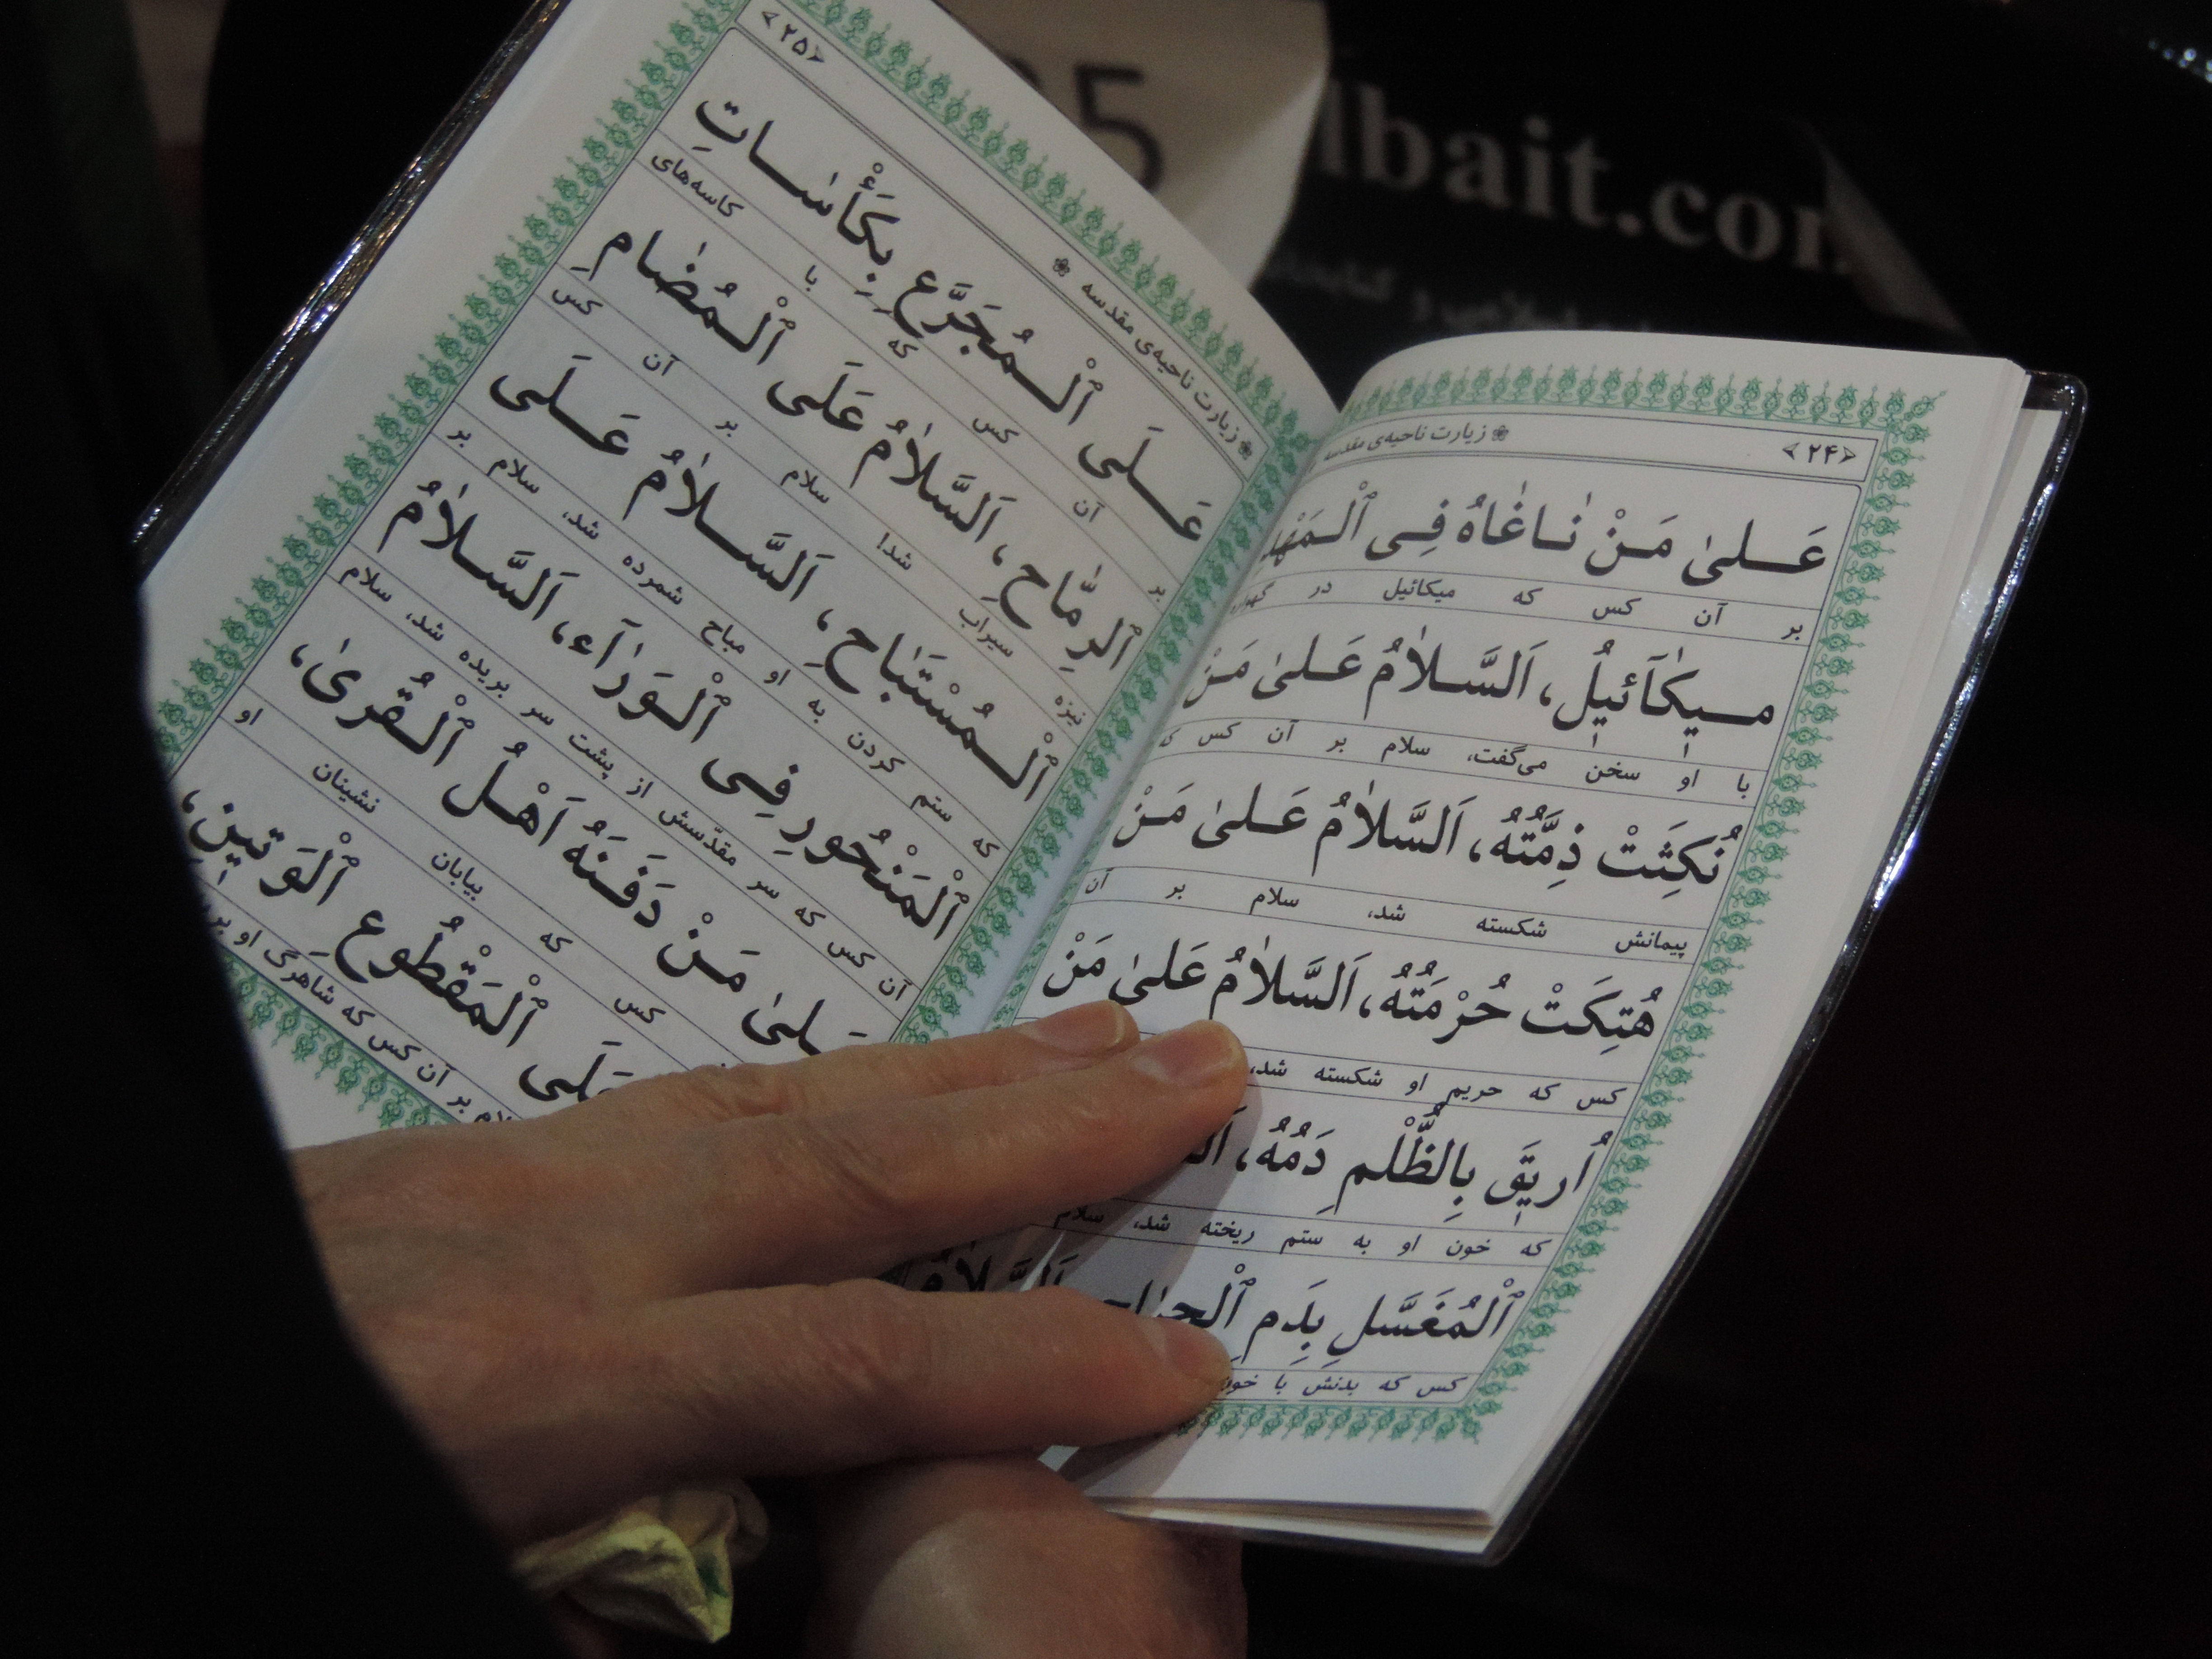 ﴿۲۴﴾ ❀ زیارت ناحیه‌ی مقدسه
عَـلىٰ مَـنْ نٰـاغٰاهُ فِـى ٱلْـمَهْدِ
بر آن کس که میکائیل در گهواره
مـيكٰآئيلُ، اَلسَّـلاٰمُ عَـلىٰ مَـنْ
با او سخن می‌گفت، سلام بر آن کس که
نُكِثَتْ ذِمَّتُهُ، اَلسَّلاٰمُ عَـلىٰ مَـنْ
پیمانش شکسته شد، سلام بر آن
هُتِكَتْ حُرْمَتُهُ، اَلسَّلاٰمُ عَلىٰ مَنْ
کس که حریم او شکسته شد،
اُريقَ بِالظُّلْمِ دَمُهُ،
که خون او به ستم ریخته شد، سلام
ٱلْمُغَسَّلِ بِدَمِ ٱلْجِرٰاحِ
کس که بدنش با خون
❀ زیارت ناحیه‌ی مقدسه ❀ ﴿۲۵﴾
عَـلَى ٱلْـمُجَرَّعِ بِكَأْسٰـاتِ
بر آن کس که با کاسه‌های
ٱلرِّمٰاحِ، اَلسَّلاٰمُ عَلَى ٱلْـمُضٰامِ
نیزه سیراب شد! سلام بر آن کس
ٱلْـمُسْتَبٰاحِ، اَلسَّـلاٰمُ عَـلَى
که ستم کردن به او مباح شمرده شد، سلام بر
ٱلْمَنْحُورِ فِـى ٱلْـوَرٰآءِ، اَلسَّـلاٰمُ
آن کس که سر مقدّسش از پشت سر بریده شد، سلام
عَـلىٰ مَـنْ دَفَـنَهُ اَهْـلُ ٱلْـقُرىٰ،
کس که بیابان نشینان او
عَلَى ٱلْمَقْطُوعِ ٱلْوَتينِ،
سلام بر آن کس که شاهرگ او
35
lbait.com